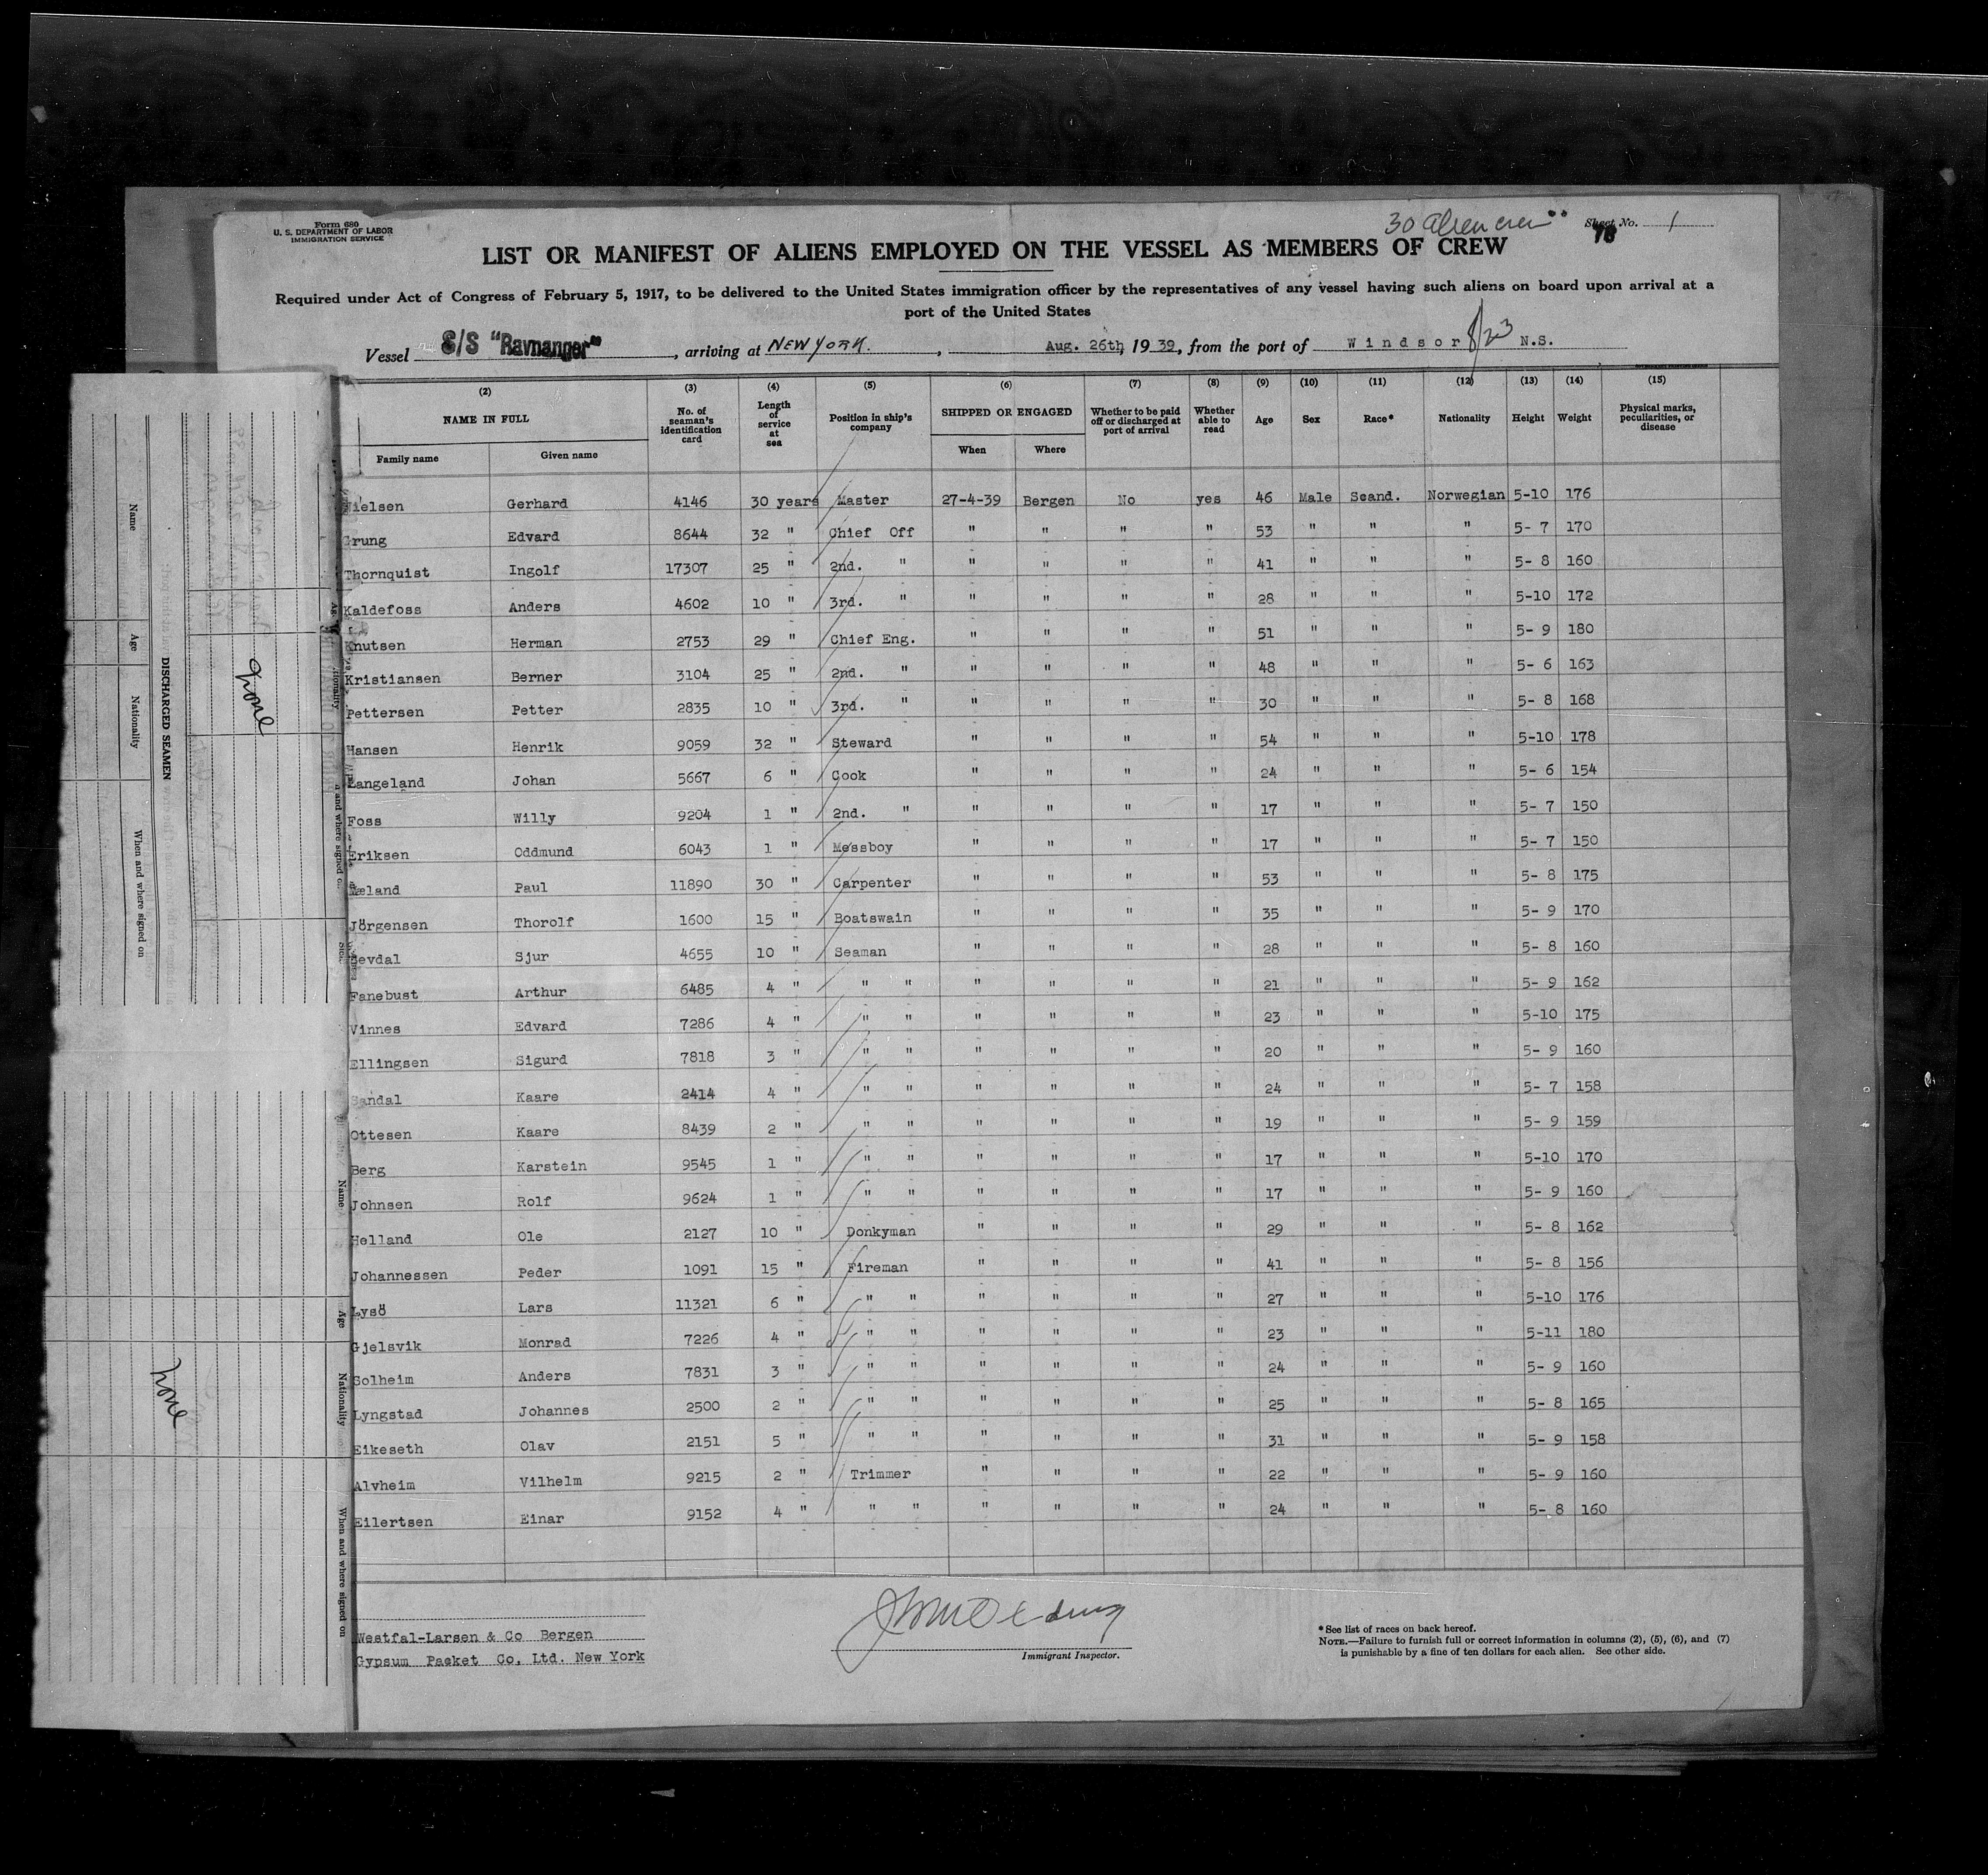 Form 680
U. S. DEPARTMENT OF LABOR
IMMIGRATION SERVICE
30 Alien crew
Sheet No. 1
LIST OR MANIFEST OF ALIENS EMPLOYED ON THE VESSEL AS MEMBERS OF CREW
Required under Act of Congress of February 5, 1917, to be delivered to the United States immigration officer by the representatives of any vessel having such aliens on board upon arrival at a
port of the United States
Vessel S/S "Ravnanger", arriving at NEW YORK., Aug. 26th, 1939, from the port of Windsor 8/23 N.S.
(2) (3) (4) (5) (6) (7) (8) (9) (10) (11) (12) (13) (14) (15)
NAME IN FULL No. of seaman's identification card Length of service at sea Position in ship's company SHIPPED OR ENGAGED Whether to be paid off or discharged at port of arrival Whether able to read Age Sex Race* Nationality Height Weight Physical marks, peculiarities, or disease
Family name Given name When Where
Nielsen Gerhard 4146 30 years Master 27-4-39 Bergen No yes 46 Male Scand. Norwegian 5-10 176
Grung Edvard 8644 32 " Chief Off " " " " 53 " " " 5- 7 170
Thornquist Ingolf 17307 25 " 2nd. " " " " " 41 " " " 5- 8 160
Kaldefoss Anders 4602 10 " 3rd. " " " " " 28 " " " 5-10 172
Knutsen Herman 2753 29 " Chief Eng. " " " " 51 " " " 5- 9 180
Kristiansen Berner 3104 25 " 2nd. " " " " " 48 " " " 5- 6 163
Pettersen Petter 2835 10 " 3rd. " " " " " 30 " " " 5- 8 168
Hansen Henrik 9059 32 " Steward " " " " 54 " " " 5-10 178
Langeland Johan 5667 6 " Cook " " " " 24 " " " 5- 6 154
Foss Willy 9204 1 " 2nd. " " " " " 17 " " " 5- 7 150
Eriksen Oddmund 6043 1 " Messboy " " " " 17 " " " 5- 7 150
Paul 11890 30 " Carpenter " " " " 53 " " " 5- 8 175
Jörgensen Thorolf 1600 15 " Boatswain " " " " 35 " " " 5- 9 170
Sjur 4655 10 " Seaman " " " " 28 " " " 5- 8 160
Fanebust Arthur 6485 4 " " " " " " " 21 " " " 5- 9 162
Vinnes Edvard 7286 4 " " " " " " " 23 " " " 5-10 175
Ellingsen Sigurd 7818 3 " " " " " " " 20 " " " 5- 9 160
Sandal Kaare 2414 4 " " " " " " " 24 " " " 5- 7 158
Ottesen Kaare 8439 2 " " " " " " " 19 " " " 5- 9 159
Berg Karstein 9545 1 " " " " " " " 17 " " " 5-10 170
Johnsen Rolf 9624 1 " " " " " " " 17 " " " 5- 9 160
Helland Ole 2127 10 " Donkyman " " " " 29 " " " 5- 8 162
Johannessen Peder 1091 15 " Fireman " " " " 41 " " " 5- 8 156
Lysö Lars 11321 6 " " " " " " " 27 " " " 5-10 176
Gjelsvik Monrad 7226 4 " " " " " " " 23 " " " 5-11 180
Solheim Anders 7831 3 " " " " " " " 24 " " " 5- 9 160
Lyngstad Johannes 2500 2 " " " " " " " 25 " " " 5- 8 165
Eikeseth Olav 2151 5 " " " " " " " 31 " " " 5- 9 158
Alvheim Vilhelm 9215 2 " Trimmer " " " " 22 " " " 5- 9 160
Eilertsen Einar 9152 4 " " " " " " " 24 " " " 5- 8 160
Westfal-Larsen & Co Bergen
Gypsum Packet Co, Ltd. New York
Immigrant Inspector.
*See list of races on back hereof.
NOTE.—Failure to furnish full or correct information in columns (2), (5), (6), and (7)
is punishable by a fine of ten dollars for each alien. See other side.
DISCHARGED SEAMEN
Name
Age
Nationality
When and where signed on
none
Name
Age
Nationality
When and where signed on
none